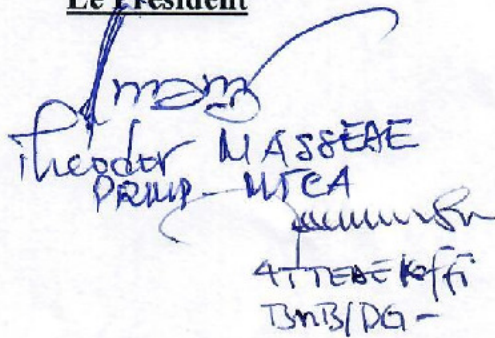 Le Président
Theodor MASSEAE
PRMP - MTCA
ATTEBE Koffi
BnB/DG -